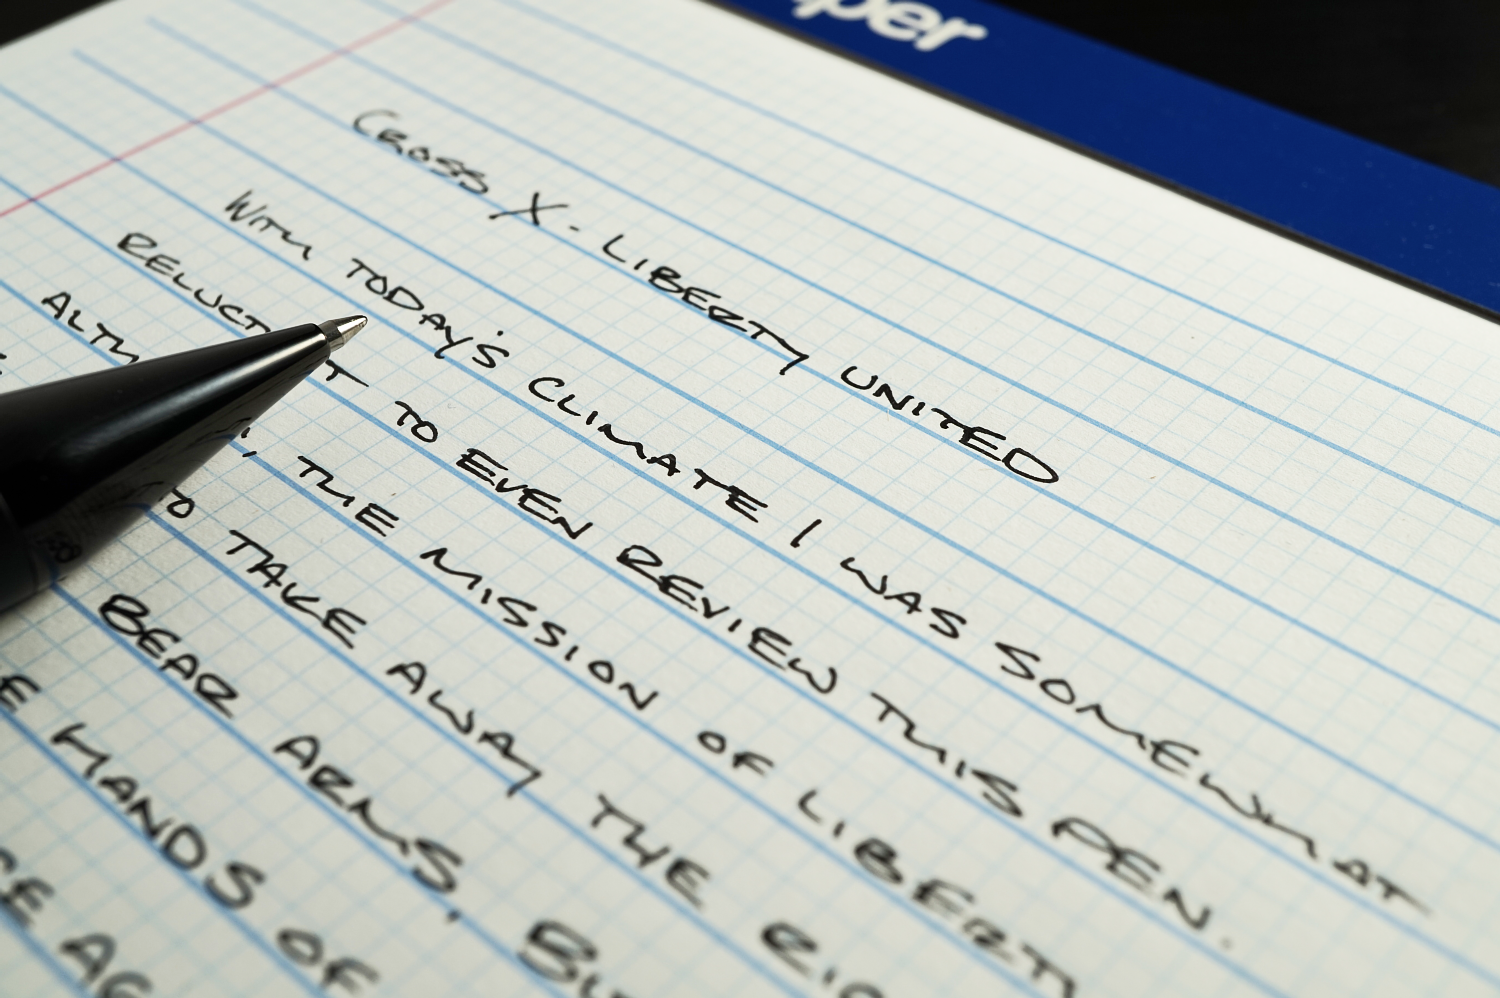 per
Cross X - LIBERTY UNITED
WITH TODAY'S CLIMATE I WAS SOMEWHAT
RELUCT T TO EVEN REVIEW THIS PEN.
ALTH , THE MISSION OF LIBERTY
TO TAKE AWAY THE
BEAR ARMS,
HANDS OF